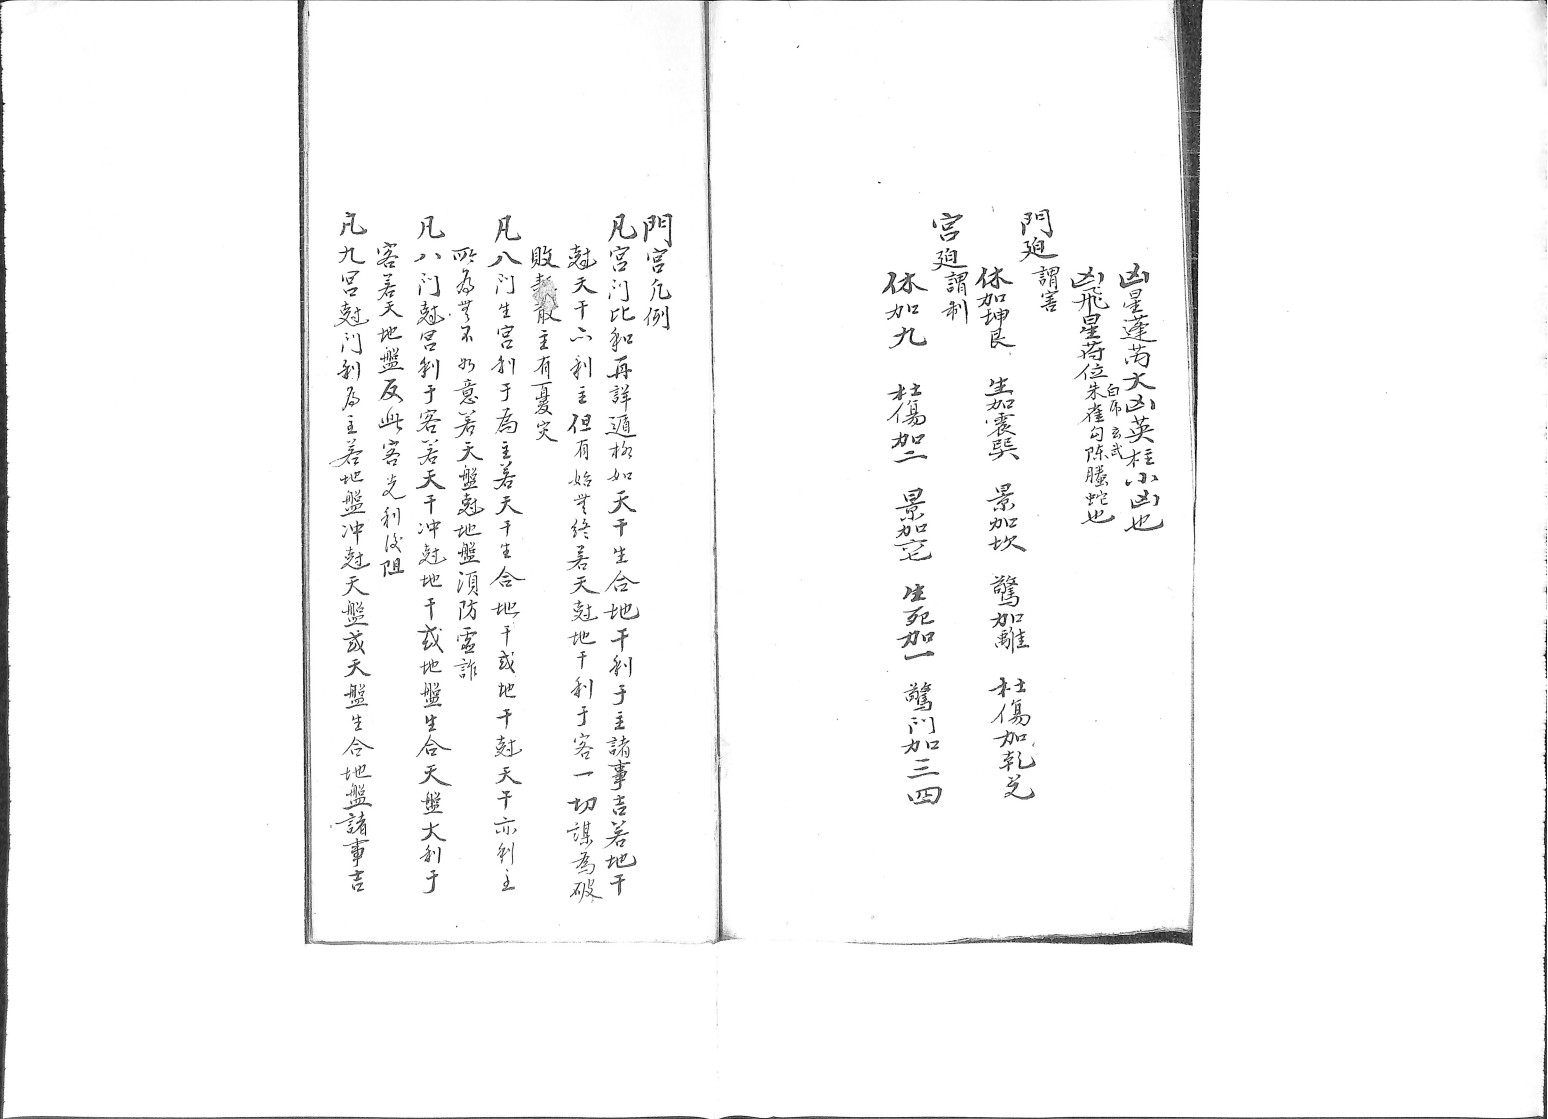 凶星蓬芮大凶英柱小凶也
凶飛星蒋位白虎玄武朱雀勾陳螣蛇也
門廹謂害
休加坤艮 生加震巽 景加坎 驚加離 杜傷加乾兌
宮廹謂制
休加九 杜傷加二 景加六七 生死加一 驚門加三四
門宮凡例
凡宮门比和再詳遁格如天干生合地干利于主諸事吉若地干
尅天干亦利主但有始無終若天尅地干利于客一切謀為破
敗散主有憂灾
凡八门生宮利于為主若天干生合地干或地干尅天干亦利主
所為無不如意若天盤尅地盤須防虛詐
凡八门尅宮利于客若天干冲尅地干或地盤生合天盤大利于
客若天地盤反此客先利後阻
凡九宮尅门利為主若地盤冲尅天盤或天盤生合地盤諸事吉